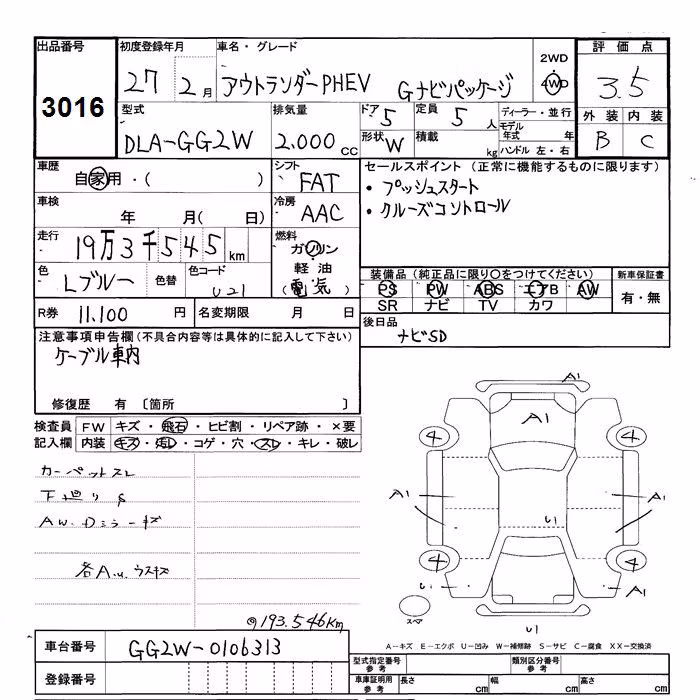 出品番号
3016
初度登録年月
27 2月
車名・グレード
アウトランダーPHEV Gナビパッケージ
2WD
4WD
評価点
3.5
外装 内装
B C
型式
DLA-GG2W
排気量
2.000 cc
ドア 5
形状 W
定員 5 人
積載 kg
ディーラー・並行
モデル年式 年
ハンドル 左・右
車歴
自家用・( )
シフト
FAT
車検
年 月( 日)
冷房
AAC
走行
19万3千545 km
燃料
ガソリン
軽油
(電気)
色
Lブルー
色替
色コード
U21
R券 11.100 円
名変期限 月 日
セールスポイント (正常に機能するものに限ります)
・プッシュスタート
・クルーズコントロール
装備品 (純正品に限り○をつけてください)
PS PW ABS エアB AW
SR ナビ TV カワ
新車保証書
有・無
後日品
ナビSD
注意事項申告欄(不具合内容等は具体的に記入して下さい)
ケーブル車内
修復歴 有 〔箇所 〕
検査員記入欄
FW キズ・飛石・ヒビ割・リペア跡・×要
内装 キズ・汚レ・コゲ・穴・スレ・キレ・破レ
カーペットスレ
下廻りS
AW.Dミラーキズ
各A.U.ウスキズ
@193.546Km
A1
A1
4
4
A1
A1
U1
4
4
U1
A1
スペア
U1
A-キズ E-エクボ U-凹み W-補修跡 S-サビ C-腐食 XX-交換済
車台番号
GG2W-0106313
登録番号
型式指定番号 参考
類別区分番号 参考
車庫証明用 参考
長さ cm
幅 cm
高さ cm